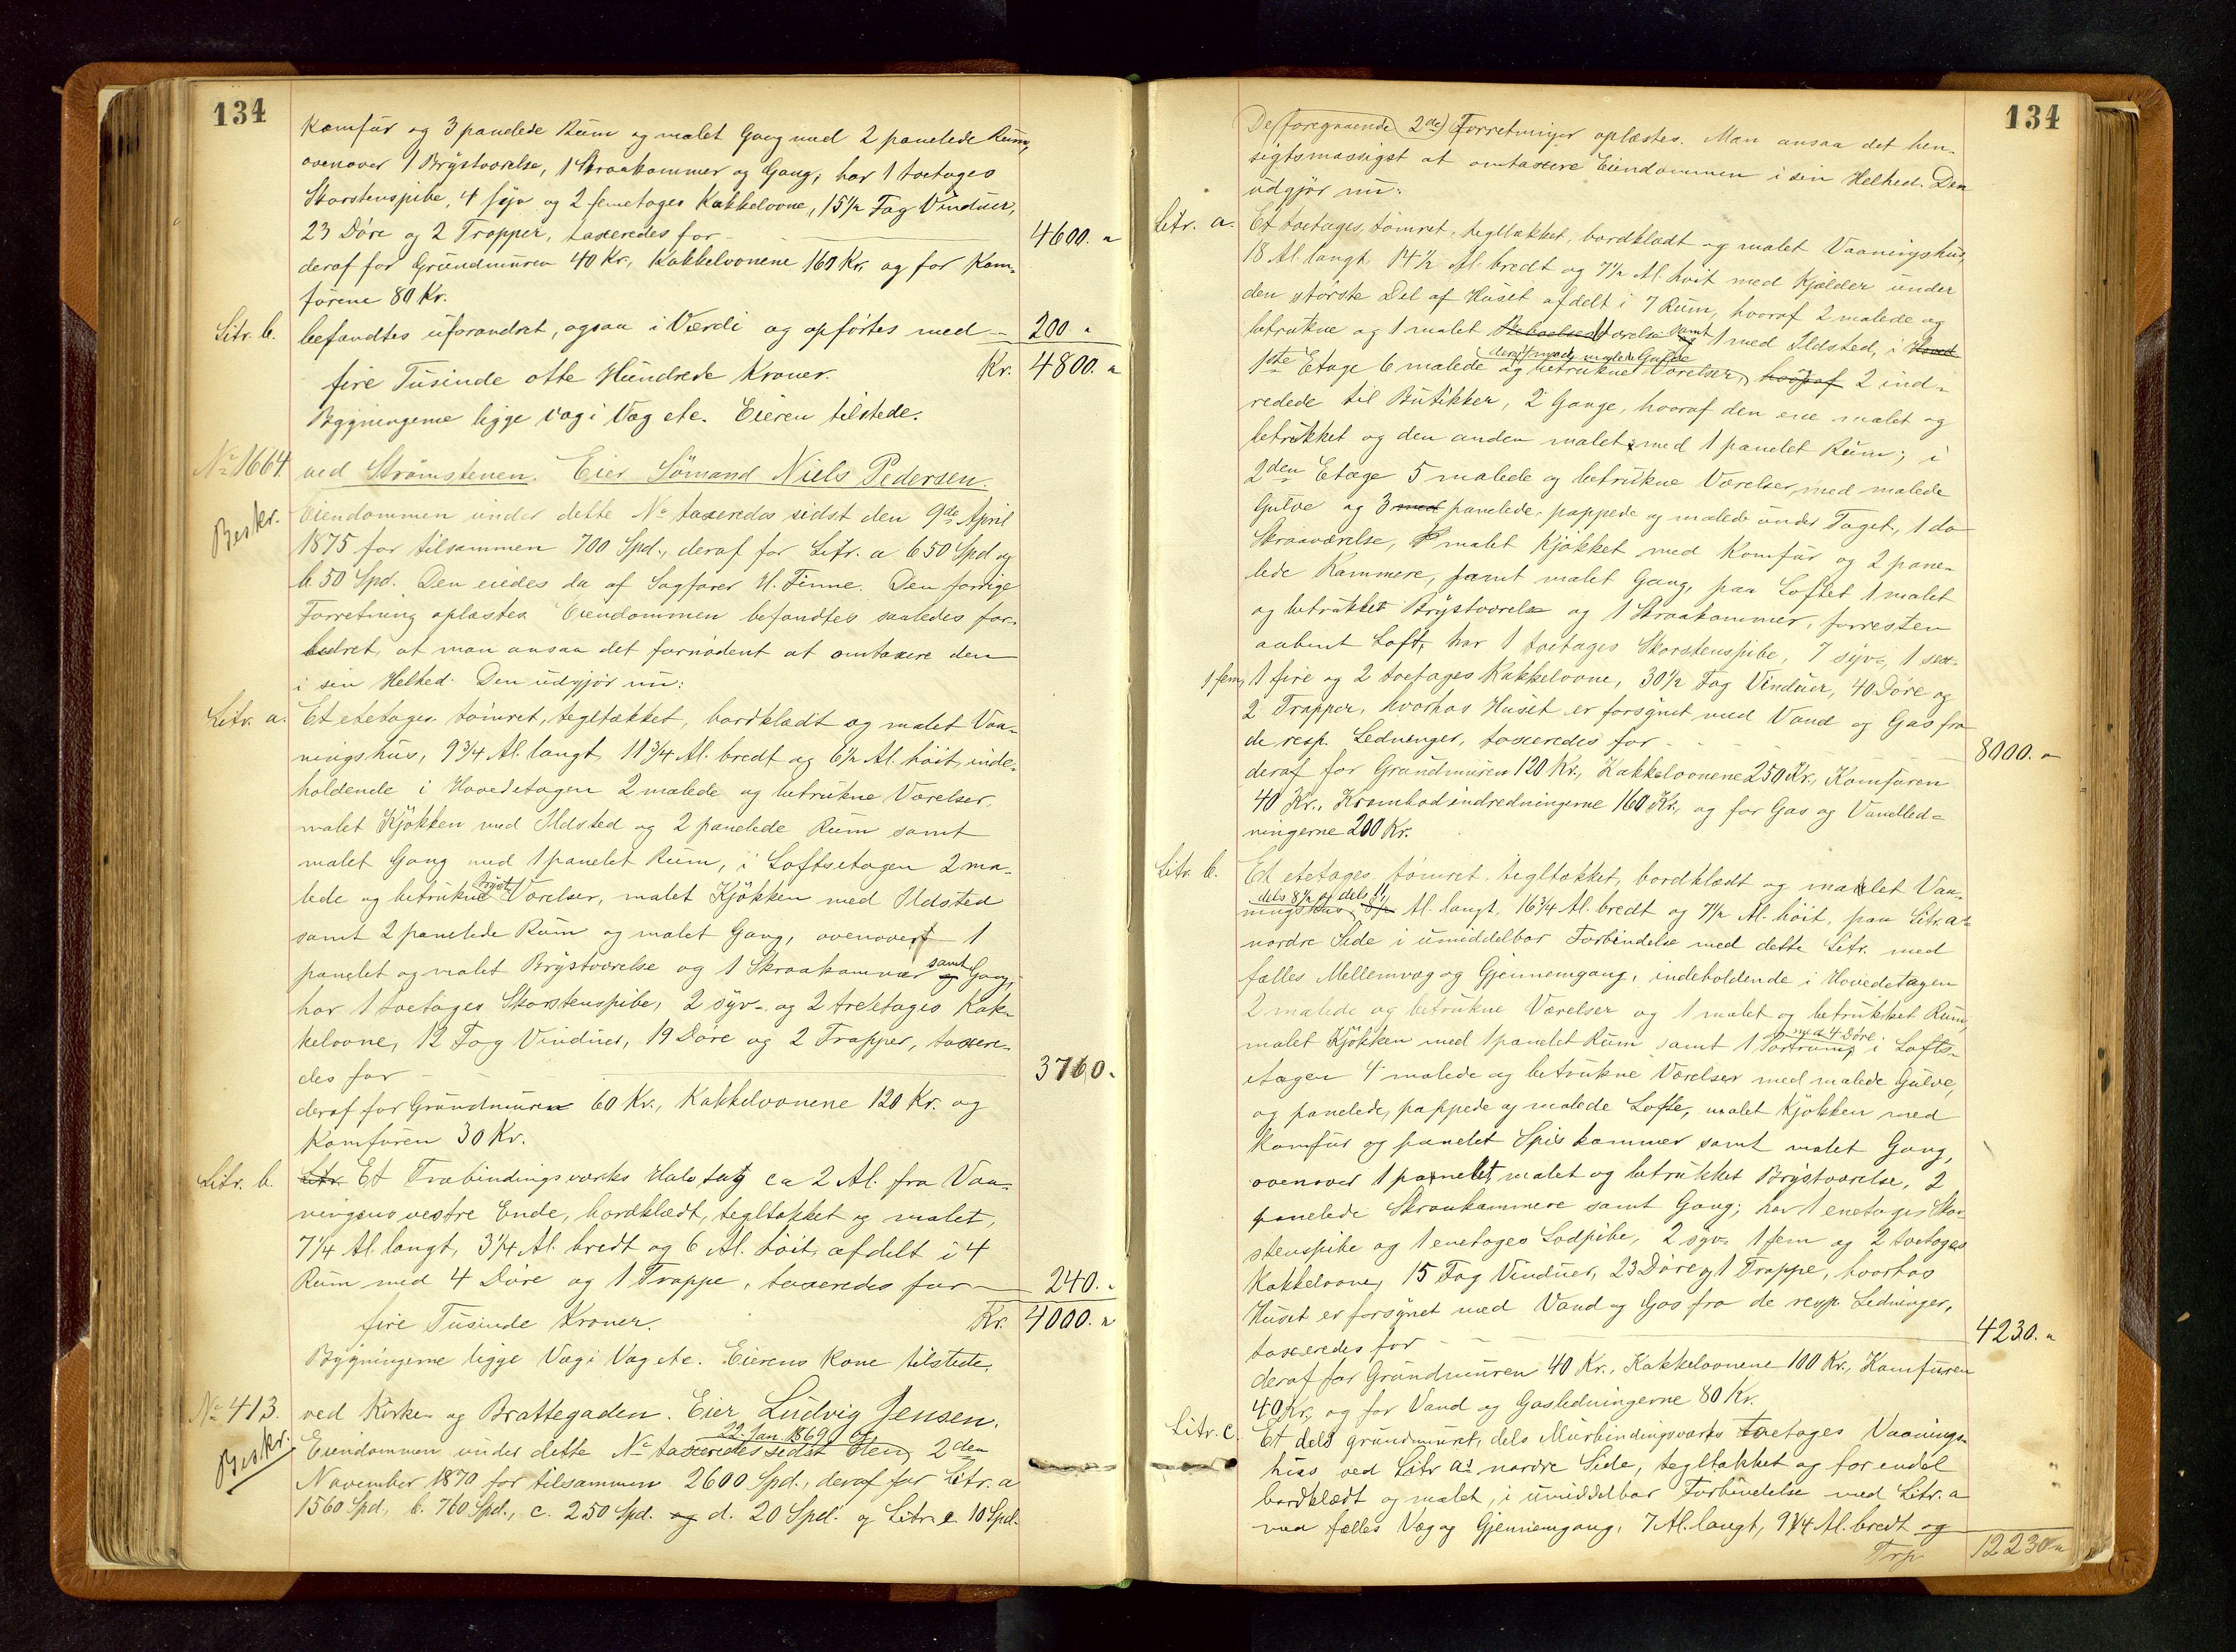 134
Komfür og 3 panelede Rüm og malet Gang med 2 panelede Rüm,
ovenover 1 Brÿstværelse, 1 Skraakammer og Gang, har 1 toetages
Skorstenspibe, 4 syv og 2 femetages Kakkelovne, 15½ Fag Vindüer,
23 Döre og 2 Trapper, taxeredes for 4600. "
deraf for Gründmüren 40 Kr., Kakkelovnene 160 Kr. og for Kom-
fürene 80 Kr.
Litr. b. befandtes üforandret, ogsaa i Værdi og opförtes med 200 "
fire Tüsinde otte Hündrede Kroner. Kr. 4800. "
Bygningerne ligge væg i Væg etc. Eieren tilstede.
No 1664. ved Strömstenen. Eier Sömand Niels Pedersen.
Beskr. Eiendommen ünder dette No taxeredes sidst den 9de April
1875 for tilsammen 700 Spd., deraf for Litr. a 650 Spd og
b. 50 Spd. Den eiedes da af Sagförer H. Finne. Den forrige
Forretning oplæstes. Eiendommen befandtes saaledes for-
bedret, at man ansaa det fornödent at omtaxere den
i sin Helhed. Den üdgjör nü:
Litr. a. Et etetages tömret, tegltækket, bordklædt og malet Vaa-
ningshüs, 9¾ Al. langt, 11¾ Al. bredt og 6½ Al. höit, inde-
holdende i Hovedetagen 2 malede og betrükne Værelser,
malet Kjökken med Ildsted og 2 panelede Rüm samt
malet Gang med 1 panelet Rüm, i Loftsetagen 2 ma-
lede og betrükne Bryst Værelser, malet Kjökken med Ildsted
samt 2 panelede Rüm og malet Gang, ovenover 1
panelet og malet Brÿstværelse og 1 Skraakammer og samt Gang,
har 1 toetages Skorstenspibe, 2 syv- og 2 treetages Kak-
kelovne, 12 Fag Vindüer, 19 Döre og 2 Trapper, taxere-
des for 3760. "
deraf for Gründmüren 60 Kr., Kakkelovnene 120 Kr. og
Komfüren 30 Kr.
Litr. b. Litr. Et Træbindingsværks Halvtag ca 2 Al. fra Vaa-
ningens vestre Ende, bordklædt, tegltækket og malet,
7¼ Al. langt, 3¼ Al. bredt og 6 Al. höit, afdelt i 4
Rüm med 4 Döre og 1 Trappe, taxeredes for 240. "
fire Tüsinde Kroner. Kr. 4000. "
Bygningerne ligge Væg i Væg etc. Eierens Kone tilstede.
No 413. ved Kirke- og Brattegaden. Eier Ludvig Jensen.
22 Jan. 1869 og
Beskr. Eiendommen ünder dette No taxeredes sidst den 2den
November 1870 for tilsammen 2600 Spd., deraf for Litr. a
1560 Spd., b. 760 Spd., c. 250 Spd. og d. 20 Spd. og Litr. e 10 Spd.
134
De foregaaende 2de Forretninger oplæstes. Man ansaa det hen-
sigtsmæssigst at omtaxere Eiendommen i sin Helhed. Den
üdgjör nü:
Litr. a. Et toetages, tömret, tegltækket, bordklædt og malet Vaaningshüs,
18 Al. langt, 14½ Al. bredt og 7½ Al. höit med Kjælder ünder
den største Del af Hüset afdelt i 7 Rüm, hvoraf 2 malede og
betrükne og 1 malet Værelse samt 1 med Ildsted, i Hoved
deraf 1 med malede Gülve
1ste Etage 6 malede og betrükne Værelser, hvoraf 2 ind-
redede til Bütikker, 2 Gange, hvoraf den ene malet og
betrükket og den anden malet med 1 panelet Rüm; i
2den Etage 5 malede og betrükne Værelser med malede
Gülve og 3 med panelede, pappede og malede ünder Taget, 1 do
Skraaværelse, malet Kjökket med Komfür og 2 pane-
lede Kammere, samt malet Gang, paa Loftet 1 malet
og betrükket Brÿstværelse og 1 Skraakammer, forresten
aabent Loft, har 1 toetages Skorstenspibe, 7 syv-, 1 sex-
1 fem, 1 fire og 2 toetages Kakkelovne, 30½ Fag Vindüer, 40 Döre og
2 Trapper, hvorhos Hüset er forsynet med Vand og Gas fra
de resp. Ledninger, taxeredes for 8000. "
deraf for Gründmüren 120 Kr., Kakkelovnene 250 Kr., Komfüren
40 Kr., Krambodindredningerne 160 Kr., og for Gas og Vandled-
ningerne 200 Kr.
Litr. b. Et etetages, tömret, tegltækket, bordklædt og malet Vaa-
dels 8½ og dels 11
ningshüs, 8½ Al. langt, 16¾ Al. bredt og 7½ Al. höit, paa Litr. a's
nordre Side i ümiddelbar Forbindelse med dette Litr. med
fælles Mellemvæg og Gjennemgang, indeholdende i Hovedetagen
2 malede og betrükne Værelser og 1 malet og betrükket Rüm,
malet Kjökken med 1 panelet Rüm samt 1 Portrüm med 4 Döre, i Lofts-
etagen 4 malede og betrükne Værelser med malede Gülve,
og panelede, pappede og malede Lofte, malet Kjökken med
Komfür og panelet Spiskammer samt malet Gang,
ovenover 1 panelet, malet og betrükket Brÿstværelse, 2
panelede Skraakammere samt Gang; har 1 enetages Skor-
stenspibe og 1 enetages Lodpibe, 2 syv- 1 fem og 2 toetages
Kakkelovne, 15 Fag Vindüer, 23 Döre og 1 Trappe, hvorhos
Hüset er forsynet med Vand og Gas fra de resp. Ledninger,
taxeredes for 4230. "
deraf for Gründmüren 40 Kr., Kakkelovnene 100 Kr., Komfüren
40 Kr., og for Vand og Gasledningerne 80 Kr.
Litr. c. Et dels gründmüret, dels Mürbindingsværks toetages Vaanings-
hüs ved Litr a's nordre Side, tegltækket og for endel
bordklædt og malet, i ümiddelbar Forbindelse med Litr. a
fælles Væg og Gjennemgang, 7 Al. langt, 9¼ Al. bredt og
Trp. 12230 "